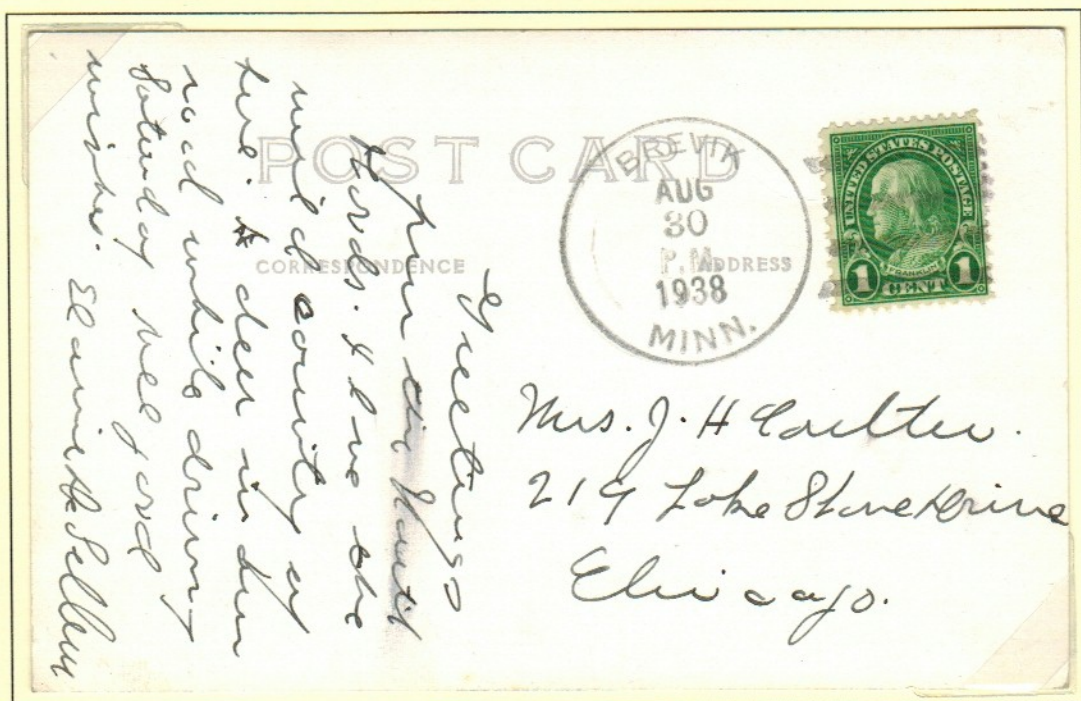 POST CARD
CORRESPONDENCE
ADDRESS
BREVIK
AUG
30
P.M.
1938
MINN.
UNITED STATES POSTAGE
FRANKLIN
1 CENT 1
Greetings
from the North
Woods. I love the
wild country up
here. A deer in the
road while driving
Saturday Well good
wishes.
Mrs. J. H Coulter.
219 Lake Shore Drive
Chicago.